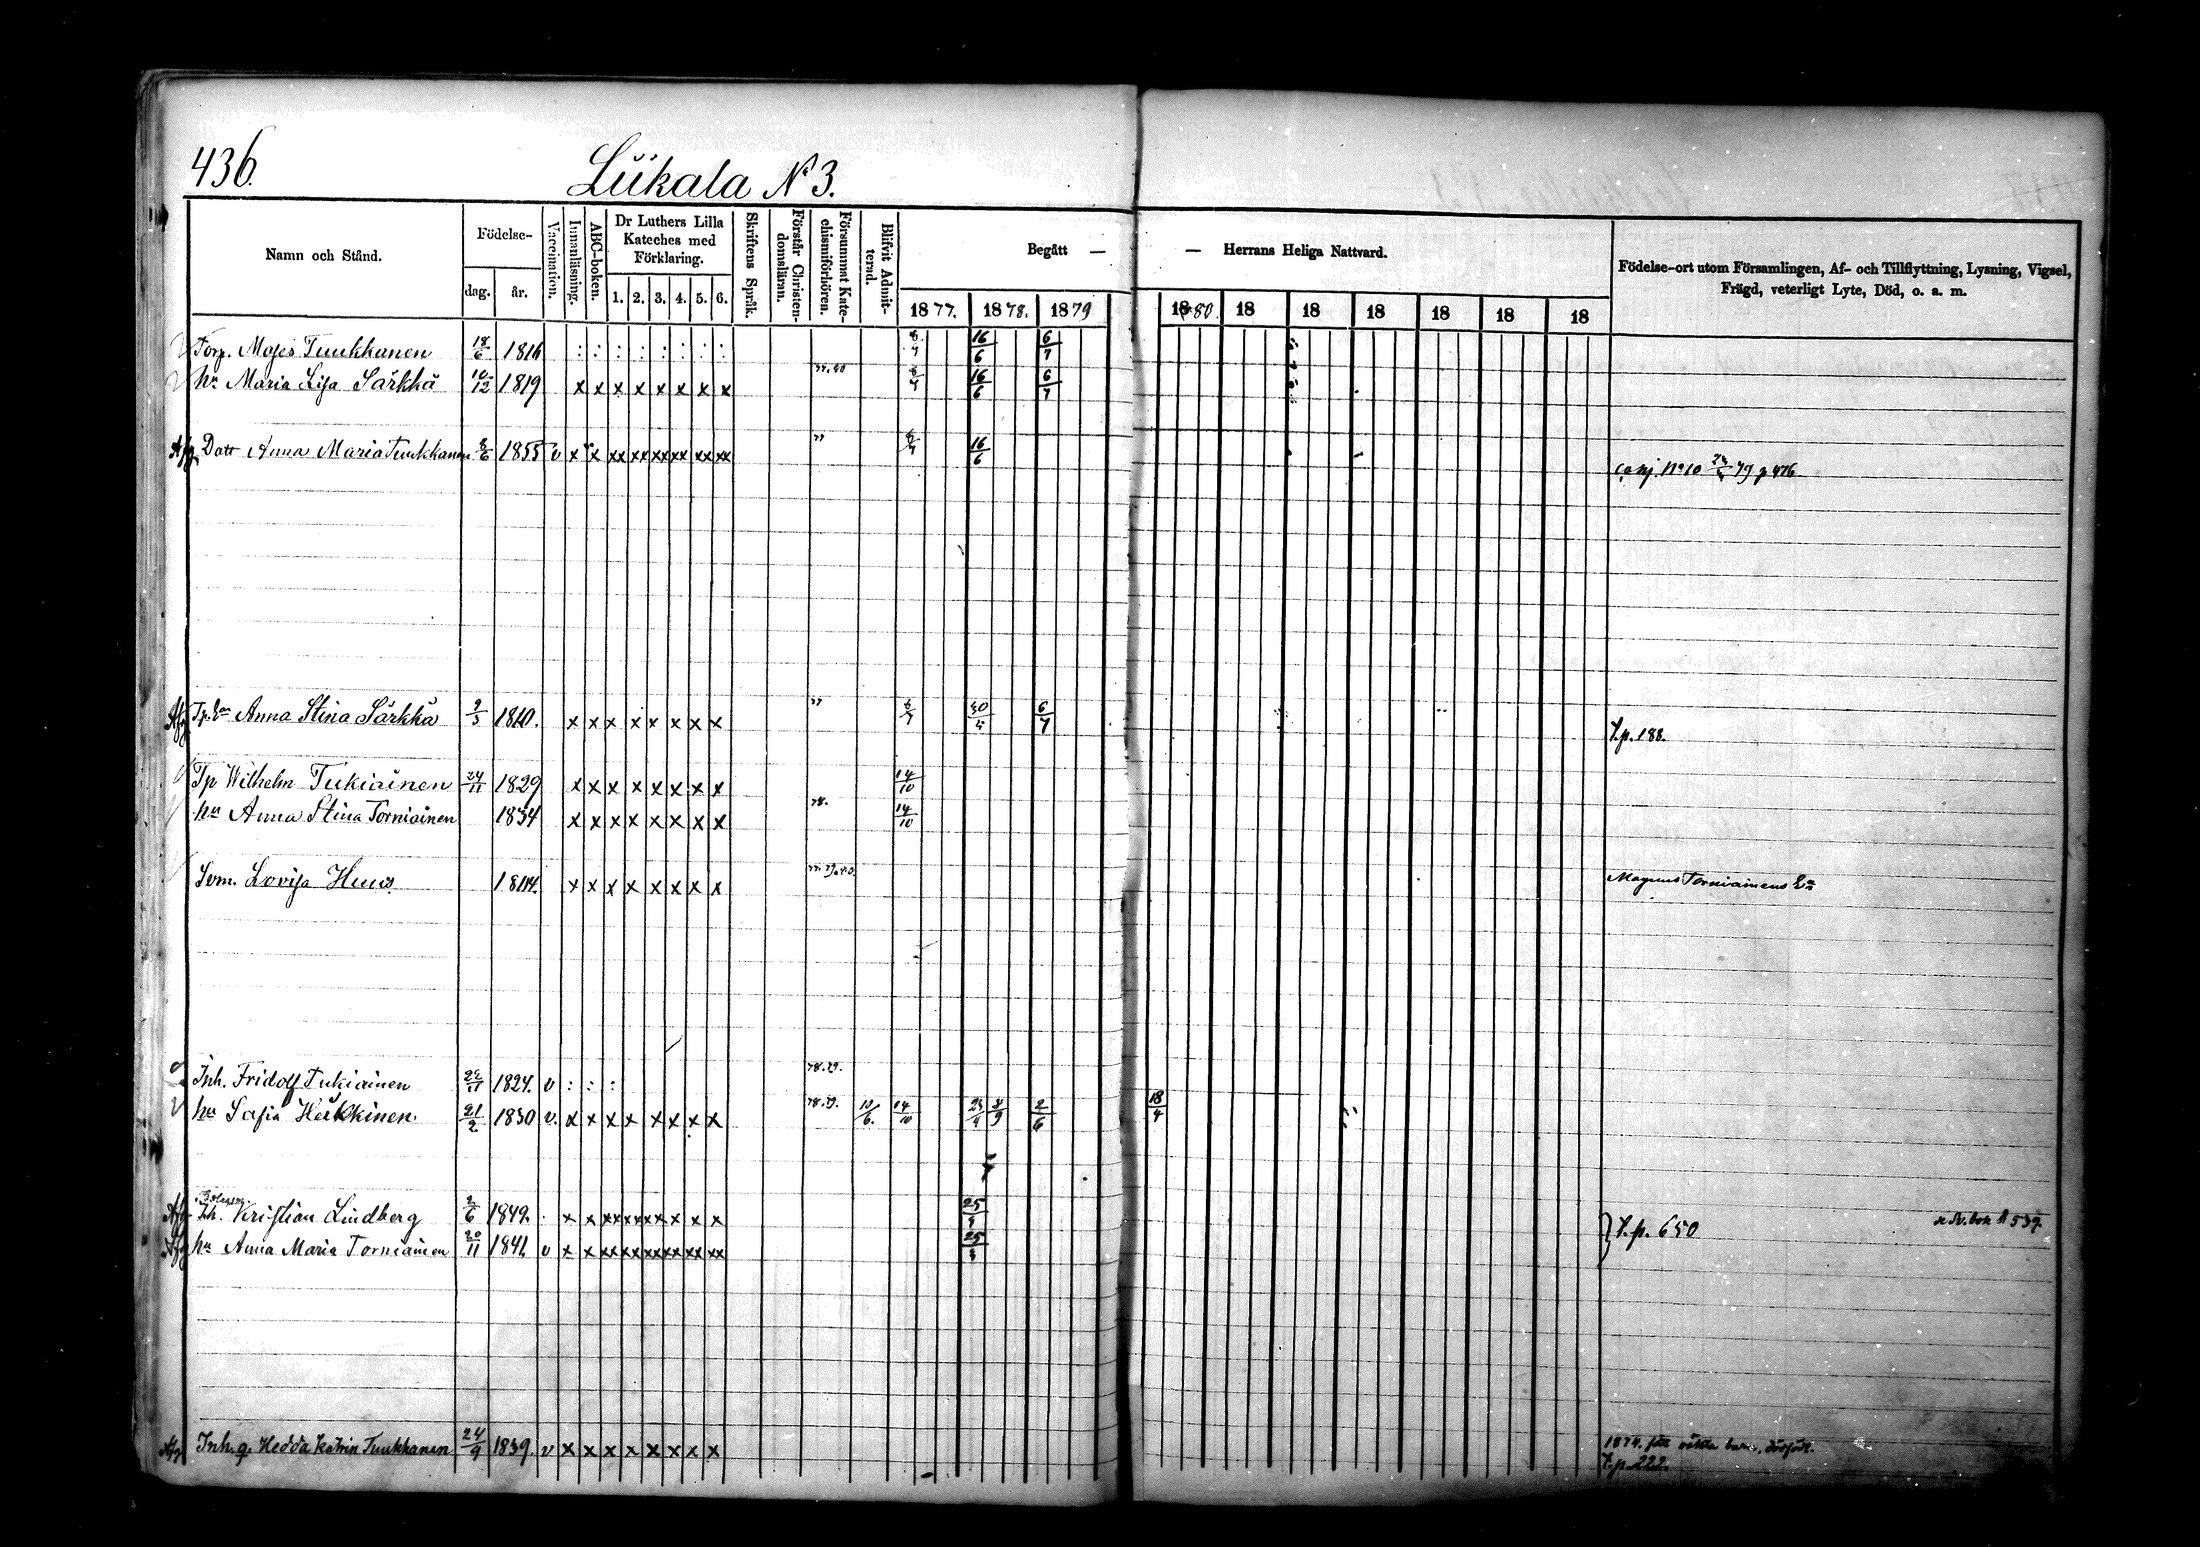 436.
Liikala N° 3.
Namn och Stånd. Födelse- dag. år. Vaccination. Innanläsning. ABC-boken. Dr Luthers Lilla Kateches med Förklaring. 1. 2. 3. 4. 5. 6. Skriftens Språk. Förstår Christendomsläran. Försummat Katechismiförhören. Blifvit Admitterad. Begått — — Herrans Heliga Nattvard. Födelse-ort utom Församlingen, Af- och Tillflyttning, Lysning, Vigsel, Frägd, veterligt Lyte, Död, o. a. m.
1877. 1878. 1879 1880. 18 18 18 18 18 18
Torp. Moses Tuukkanen 18/6 1816 : : : : : : : : 16/6 6/7
hu Maria Lisa Särkkä 10/12 1819 x x x x x x x x 16/6 6/7
Afg. Dott Anna Maria Tuukkanen 8/6 1855 v x x xx xx xx xx xx xx 16/6 conj. N:o 10 79 p 476
Afg Anna Stina Särkkä 9/3 1810. x x x x x x x x 6/7 T.p. 188.
Tp Wilhelm Tukiainen 24/11 1829 x x x x x x x x 14/10
hu Anna Stina Torniainen 1834 x x x x x x x x 78. 14/10
Lovisa Huus x x x x x x x x Magnus Torniainens Ea
Inh. Fridolf Tukiainen 1824. v : : : 78.79.
hu Sofia Heikkinen. 21/2 1830 v. x x x x x x x x 78.79. 10/6. 14/10 2/6 18/4
Afg Inh. Kristian Lindberg 1849. x x xx xx xx x x x T.p. 650
Afg hu Anna Maria Torniainen 20/11 1841. v x x xx xx xx xx xx xx
Afg Inh. q. Hedda Katrin Tuukkanen 24/9 1839. v x x x x x x x x 1874. fått oäkta barn, dödfödt.
T.p. 222.